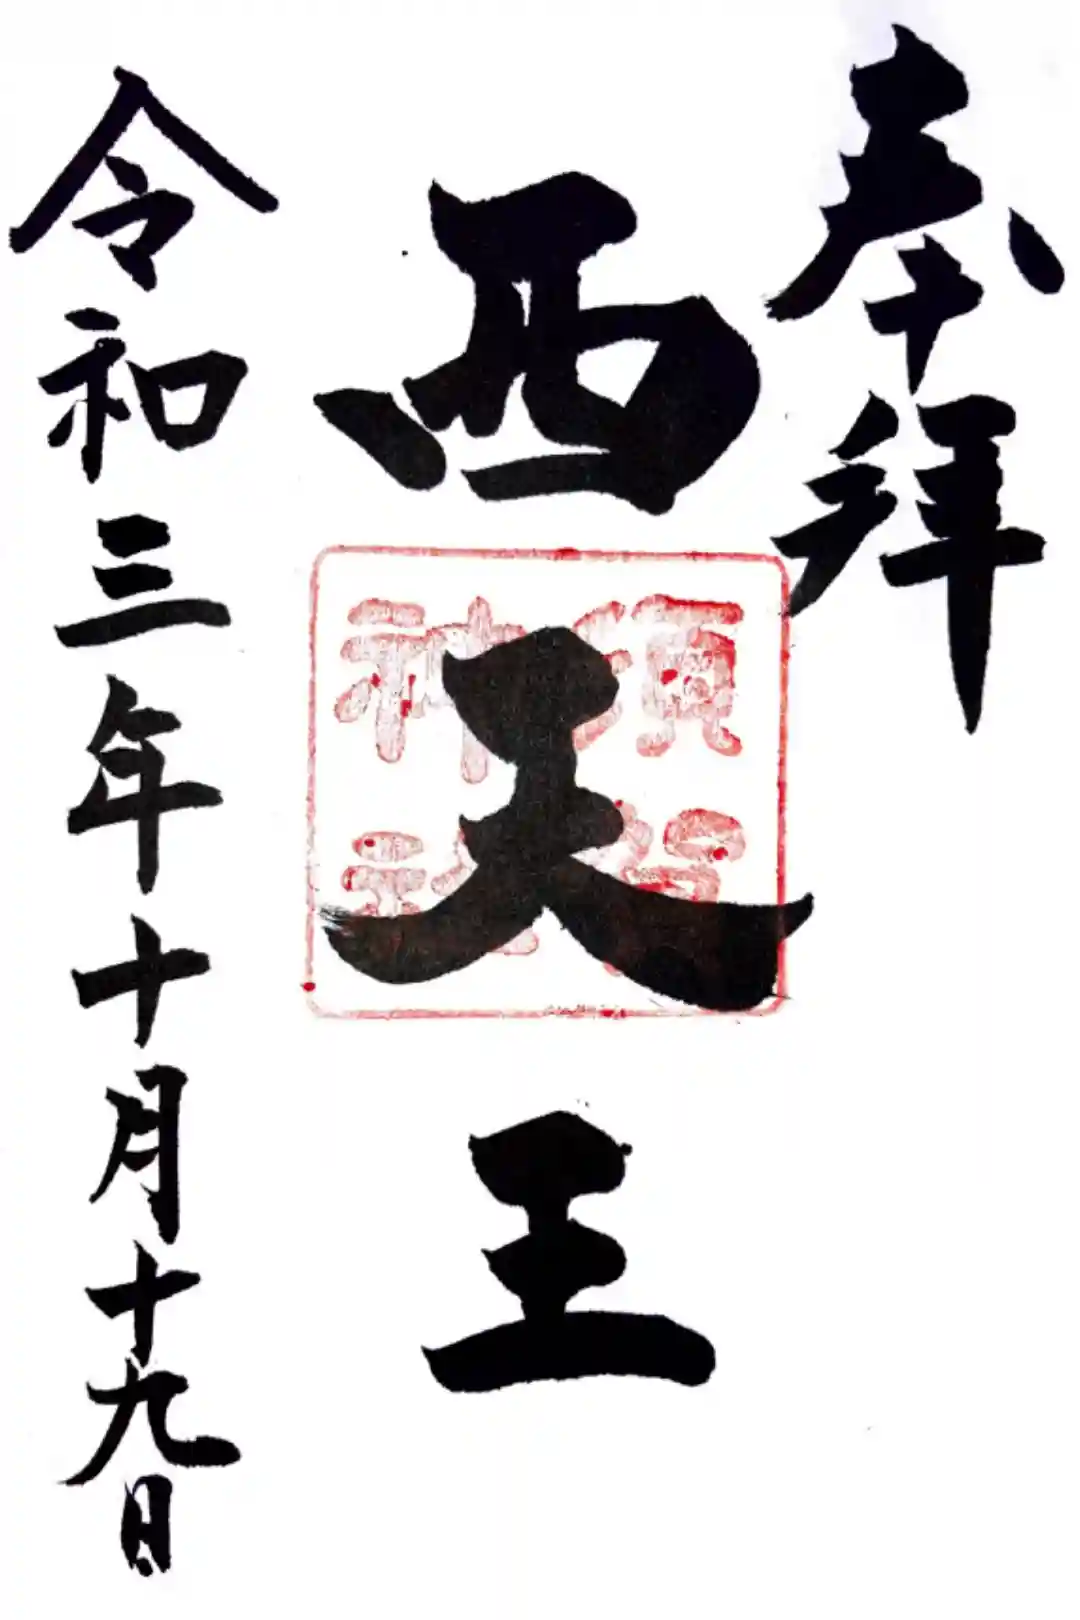 奉拝
西天王
須賀
神社
令和三年十月十九日